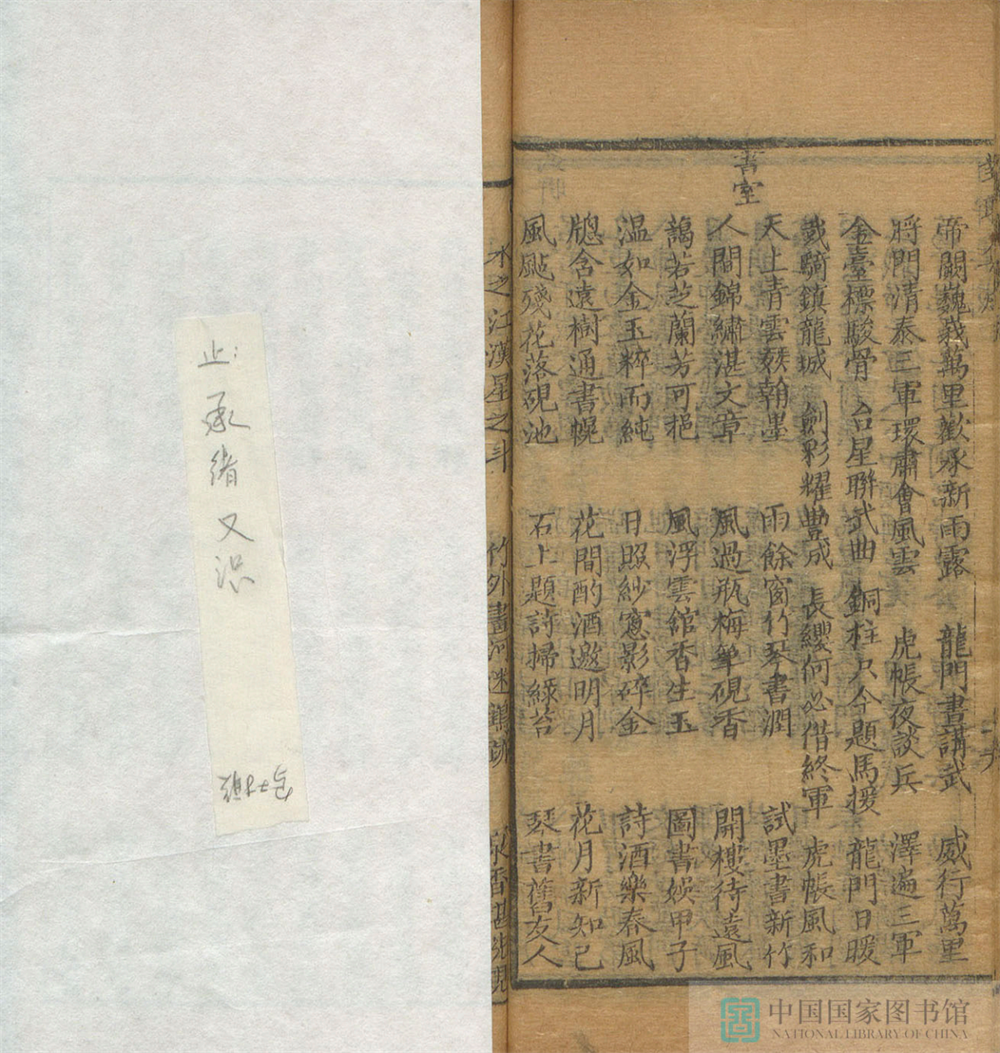 帝闕巍義萬里歡承新雨露 龍門晝講武 威行萬里
將門清泰三軍環肅會風雲 虎帳夜談兵 澤遍三軍
金臺標駿骨 台星聯武曲 銅柱只今題馬援 龍門日暖
戟騎鎮龍城 劍彩耀豐城 長纓何必借終軍 虎帳風和
書室
天上青雲麸翰墨 雨餘窗竹琴書潤 試墨書新竹
人間錦繡湛文章 風過瓶梅筆硯香 開樓待遠風
藹若芝蘭芳可挹 風浮雲館香生玉 圖書娛甲子
温如金玉粹而純 日照紗窻影碎金 詩酒樂春風
牕含遠樹通書幌 花間酌酒邀明月 花月新知己
風颭殘花落硯池 石上題詩掃綠苔 琴書舊友人
水之江漢星之斗 竹外畫
止:承緒又浱
中国国家图书馆
NATIONAL LIBRARY OF CHINA